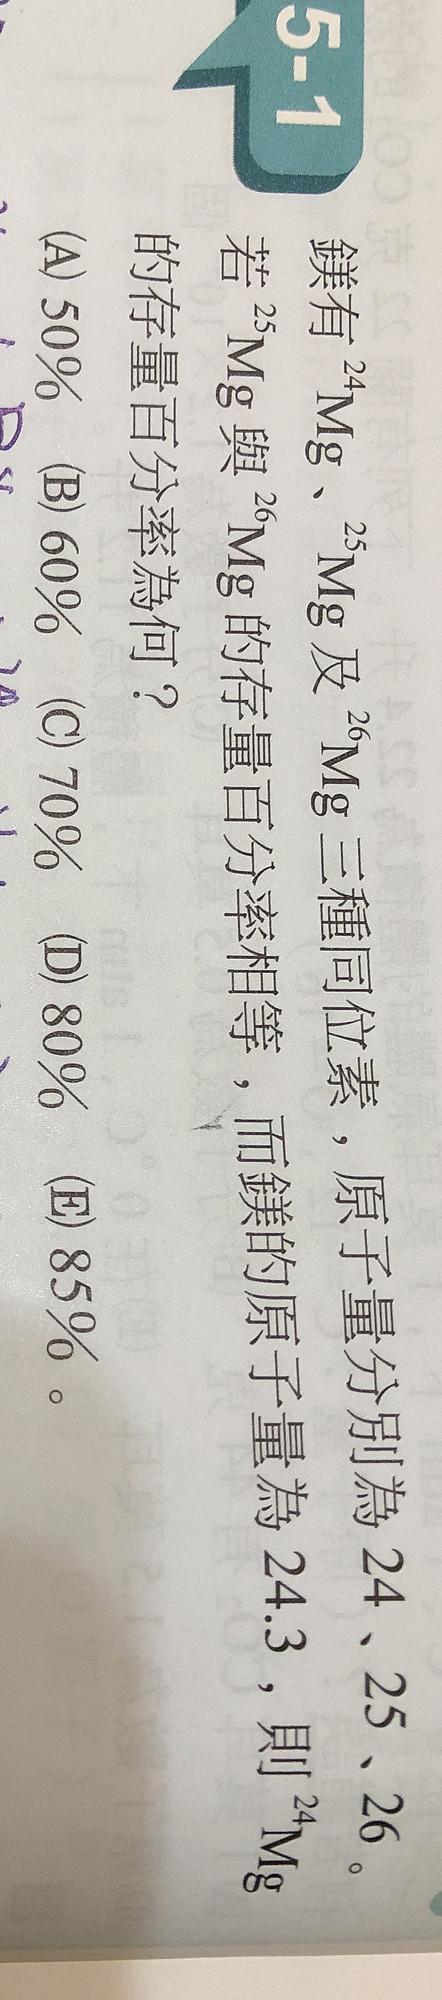 5-1
鎂有 ²⁴Mg、²⁵Mg 及 ²⁶Mg 三種同位素，原子量分別為 24、25、26。
若 ²⁵Mg 與 ²⁶Mg 的存量百分率相等，而鎂的原子量為 24.3，則 ²⁴Mg
的存量百分率為何？
(A) 50% (B) 60% (C) 70% (D) 80% (E) 85%。